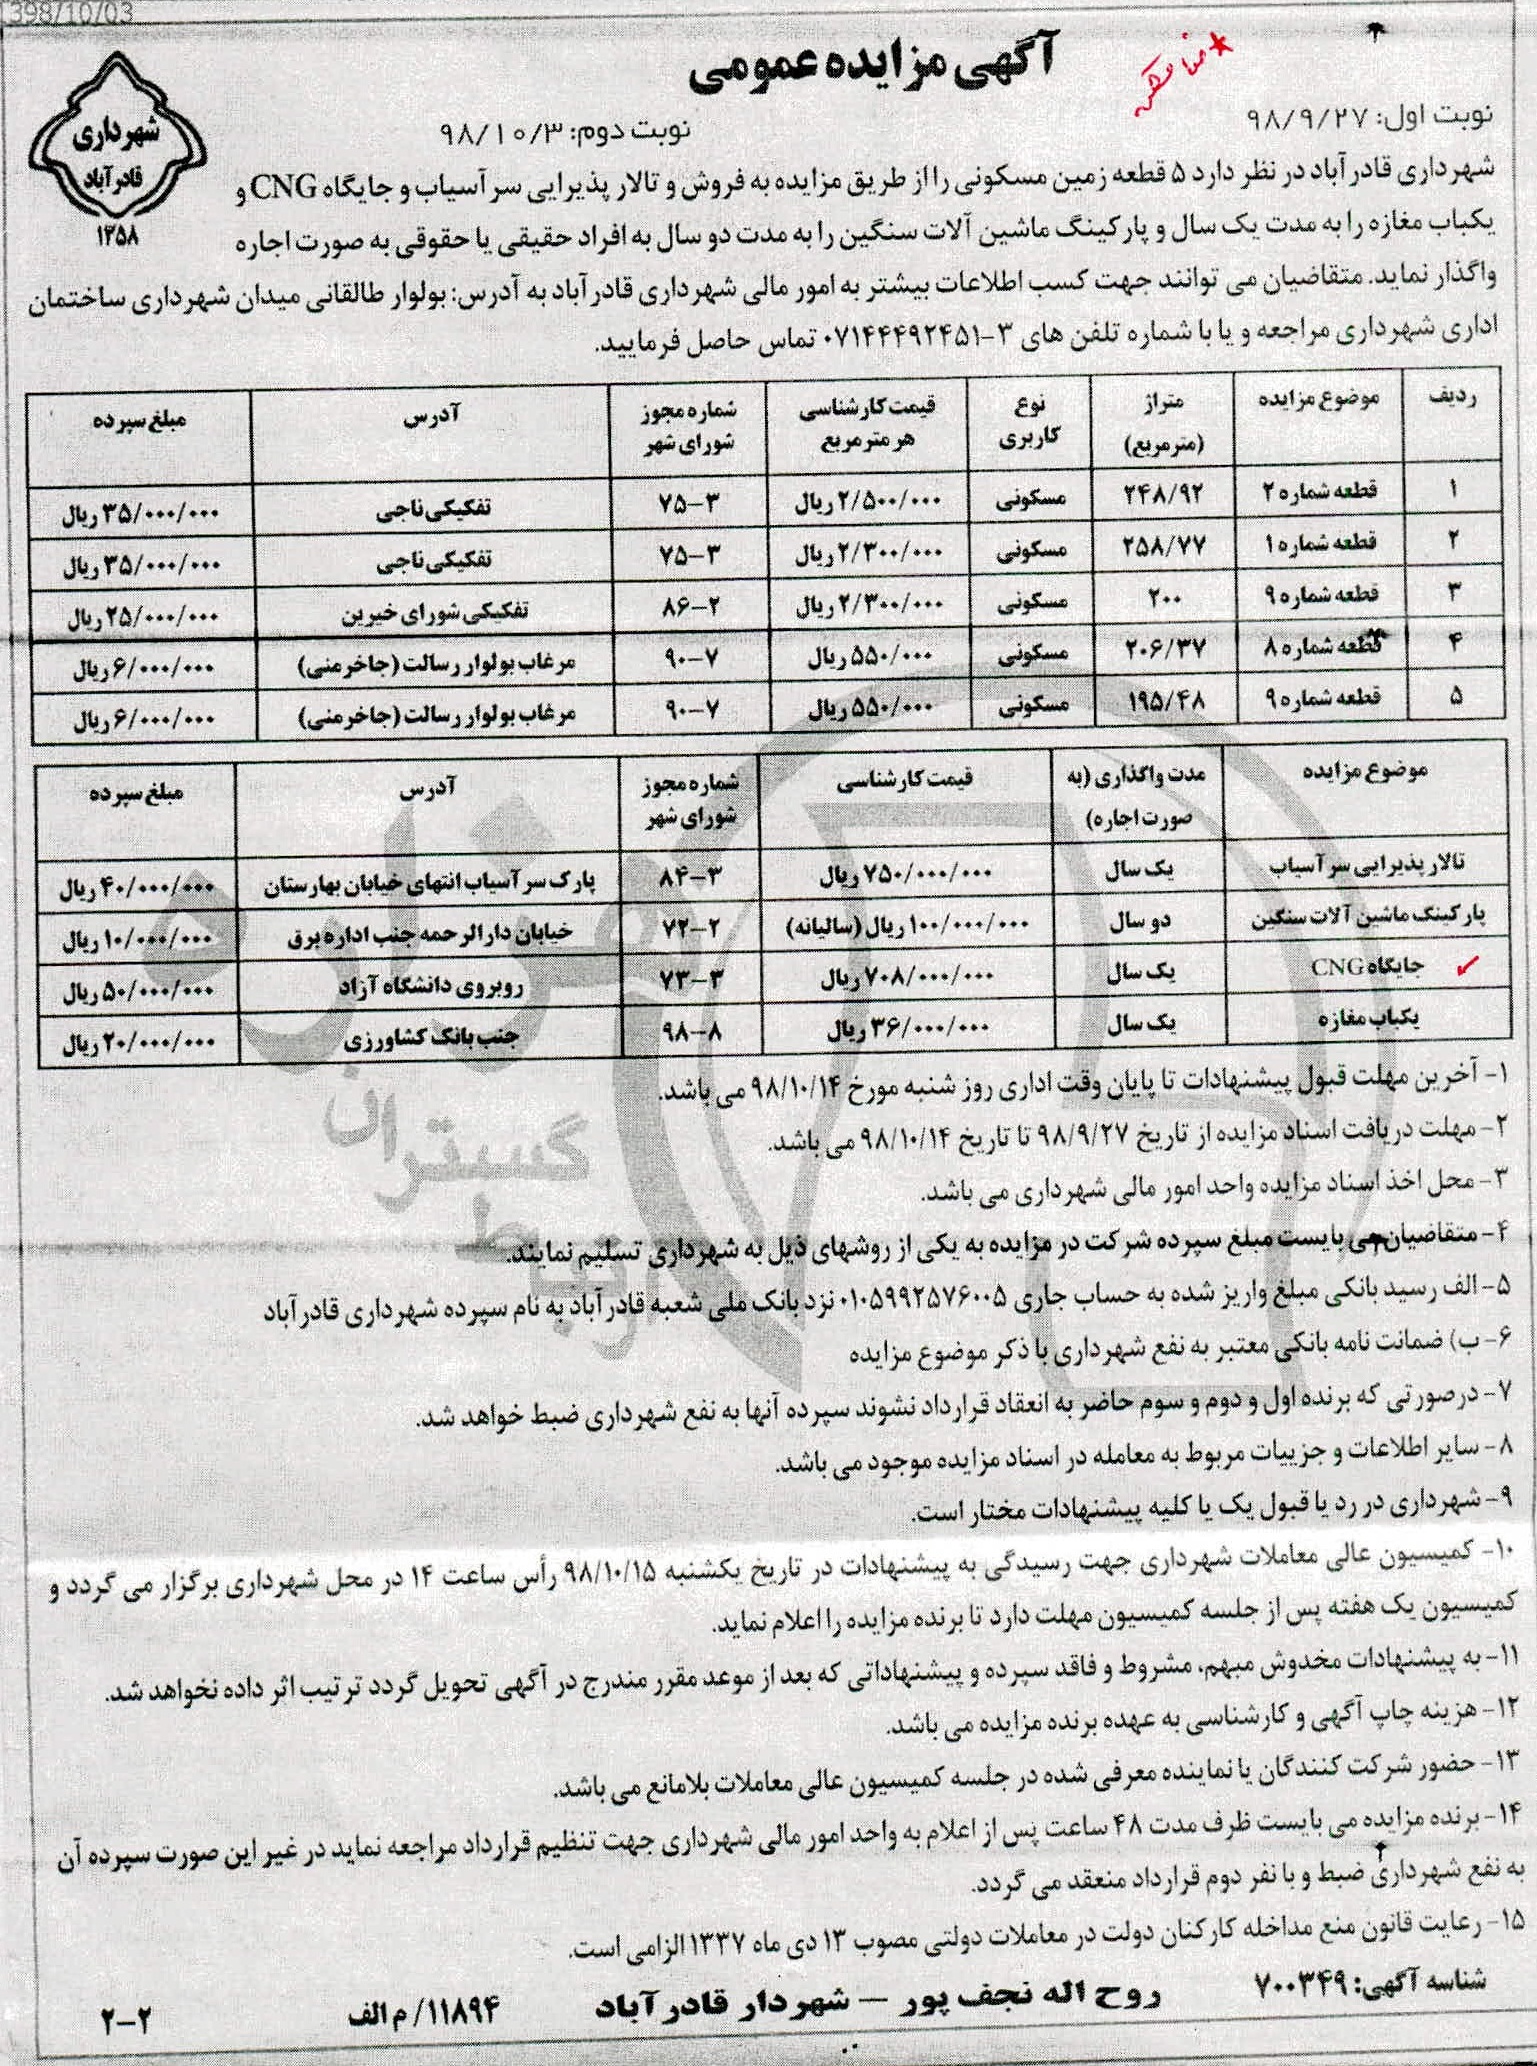 1398/10/03
آگهی مزایده عمومی
شهرداری
قادرآباد
۱۳۵۸
نوبت اول: ۹۸/۹/۲۷
نوبت دوم: ۹۸/۱۰/۳
شهرداری قادرآباد در نظر دارد ۵ قطعه زمین مسکونی را از طریق مزایده به فروش و تالار پذیرایی سرآسیاب و جایگاه CNG و
یکباب مغازه را به مدت یک سال و پارکینگ ماشین آلات سنگین را به مدت دو سال به افراد حقیقی یا حقوقی به صورت اجاره
واگذار نماید. متقاضیان می توانند جهت کسب اطلاعات بیشتر به امور مالی شهرداری قادرآباد به آدرس: بولوار طالقانی میدان شهرداری ساختمان
اداری شهرداری مراجعه و یا با شماره تلفن های ۳-۰۷۱۴۴۴۹۲۴۵۱ تماس حاصل فرمایید.
ردیف موضوع مزایده متراژ (مترمربع) نوع کاربری قیمت کارشناسی هر مترمربع شماره مجوز شورای شهر آدرس مبلغ سپرده
۱ قطعه شماره ۲ ۲۴۸/۹۲ مسکونی ۲/۵۰۰/۰۰۰ ریال ۷۵-۳ تفکیکی ناجی ۳۵/۰۰۰/۰۰۰ ریال
۲ قطعه شماره ۱ ۲۵۸/۷۷ مسکونی ۲/۳۰۰/۰۰۰ ریال ۷۵-۳ تفکیکی ناجی ۳۵/۰۰۰/۰۰۰ ریال
۳ قطعه شماره ۹ ۲۰۰ مسکونی ۲/۳۰۰/۰۰۰ ریال ۸۶-۲ تفکیکی شورای خیرین ۲۵/۰۰۰/۰۰۰ ریال
۴ قطعه شماره ۸ ۲۰۶/۳۷ مسکونی ۵۵۰/۰۰۰ ریال ۹۰-۷ مرغاب بولوار رسالت (جاخرمنی) ۶/۰۰۰/۰۰۰ ریال
۵ قطعه شماره ۹ ۱۹۵/۴۸ مسکونی ۵۵۰/۰۰۰ ریال ۹۰-۷ مرغاب بولوار رسالت (جاخرمنی) ۶/۰۰۰/۰۰۰ ریال
موضوع مزایده مدت واگذاری (به صورت اجاره) قیمت کارشناسی شماره مجوز شورای شهر آدرس مبلغ سپرده
تالار پذیرایی سرآسیاب یک سال ۷۵۰/۰۰۰/۰۰۰ ریال ۸۴-۳ پارک سرآسیاب انتهای خیابان بهارستان ۴۰/۰۰۰/۰۰۰ ریال
پارکینگ ماشین آلات سنگین دو سال ۱۰۰/۰۰۰/۰۰۰ ریال (سالیانه) ۷۲-۲ خیابان دارالرحمه جنب اداره برق ۱۰/۰۰۰/۰۰۰ ریال
جایگاه CNG یک سال ۷۰۸/۰۰۰/۰۰۰ ریال ۷۳-۳ روبروی دانشگاه آزاد ۵۰/۰۰۰/۰۰۰ ریال
یکباب مغازه یک سال ۳۶/۰۰۰/۰۰۰ ریال ۹۸-۸ جنب بانک کشاورزی ۲۰/۰۰۰/۰۰۰ ریال
۱- آخرین مهلت قبول پیشنهادات تا پایان وقت اداری روز شنبه مورخ ۹۸/۱۰/۱۴ می باشد.
۲- مهلت دریافت اسناد مزایده از تاریخ ۹۸/۹/۲۷ تا تاریخ ۹۸/۱۰/۱۴ می باشد.
۳- محل اخذ اسناد مزایده واحد امور مالی شهرداری می باشد.
۴- متقاضیان می بایست مبلغ سپرده شرکت در مزایده به یکی از روشهای ذیل به شهرداری تسلیم نمایند.
۵- الف رسید بانکی مبلغ واریز شده به حساب جاری ۰۱۰۵۹۹۲۵۷۶۰۰۵ نزد بانک ملی شعبه قادرآباد به نام سپرده شهرداری قادرآباد
۶- ب) ضمانت نامه بانکی معتبر به نفع شهرداری با ذکر موضوع مزایده
۷- درصورتی که برنده اول و دوم و سوم حاضر به انعقاد قرارداد نشوند سپرده آنها به نفع شهرداری ضبط خواهد شد.
۸- سایر اطلاعات و جزییات مربوط به معامله در اسناد مزایده موجود می باشد.
۹- شهرداری در رد یا قبول یک یا کلیه پیشنهادات مختار است.
۱۰- کمیسیون عالی معاملات شهرداری جهت رسیدگی به پیشنهادات در تاریخ یکشنبه ۹۸/۱۰/۱۵ رأس ساعت ۱۴ در محل شهرداری برگزار می گردد و
کمیسیون یک هفته پس از جلسه کمیسیون مهلت دارد تا برنده مزایده را اعلام نماید.
۱۱- به پیشنهادات مخدوش مبهم، مشروط و فاقد سپرده و پیشنهاداتی که بعد از موعد مقرر مندرج در آگهی تحویل گردد ترتیب اثر داده نخواهد شد.
۱۲- هزینه چاپ آگهی و کارشناسی به عهده برنده مزایده می باشد.
۱۳- حضور شرکت کنندگان یا نماینده معرفی شده در جلسه کمیسیون عالی معاملات بلامانع می باشد.
۱۴- برنده مزایده می بایست ظرف مدت ۴۸ ساعت پس از اعلام به واحد امور مالی شهرداری جهت تنظیم قرارداد مراجعه نماید در غیر این صورت سپرده آن
به نفع شهرداری ضبط و با نفر دوم قرارداد منعقد می گردد.
۱۵- رعایت قانون منع مداخله کارکنان دولت در معاملات دولتی مصوب ۱۳ دی ماه ۱۳۳۷ الزامی است.
شناسه آگهی: ۷۰۰۳۴۹
روح اله نجف پور – شهردار قادرآباد
۱۱۸۹۴/ م الف
۲-۲